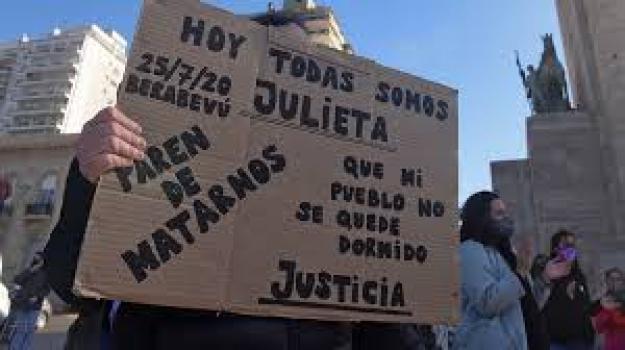 HOY TODAS SOMOS
JULIETA
25/7/20
BERABEVÚ
PAREN
DE
MATARNOS
QUE MI
PUEBLO NO
SE QUEDE
DORMIDO
JUSTICIA